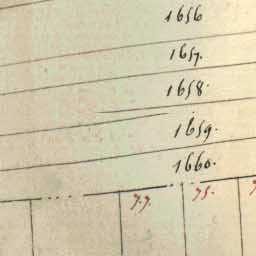 1656
1657.
1658.
1659.
1660.
77. 75.